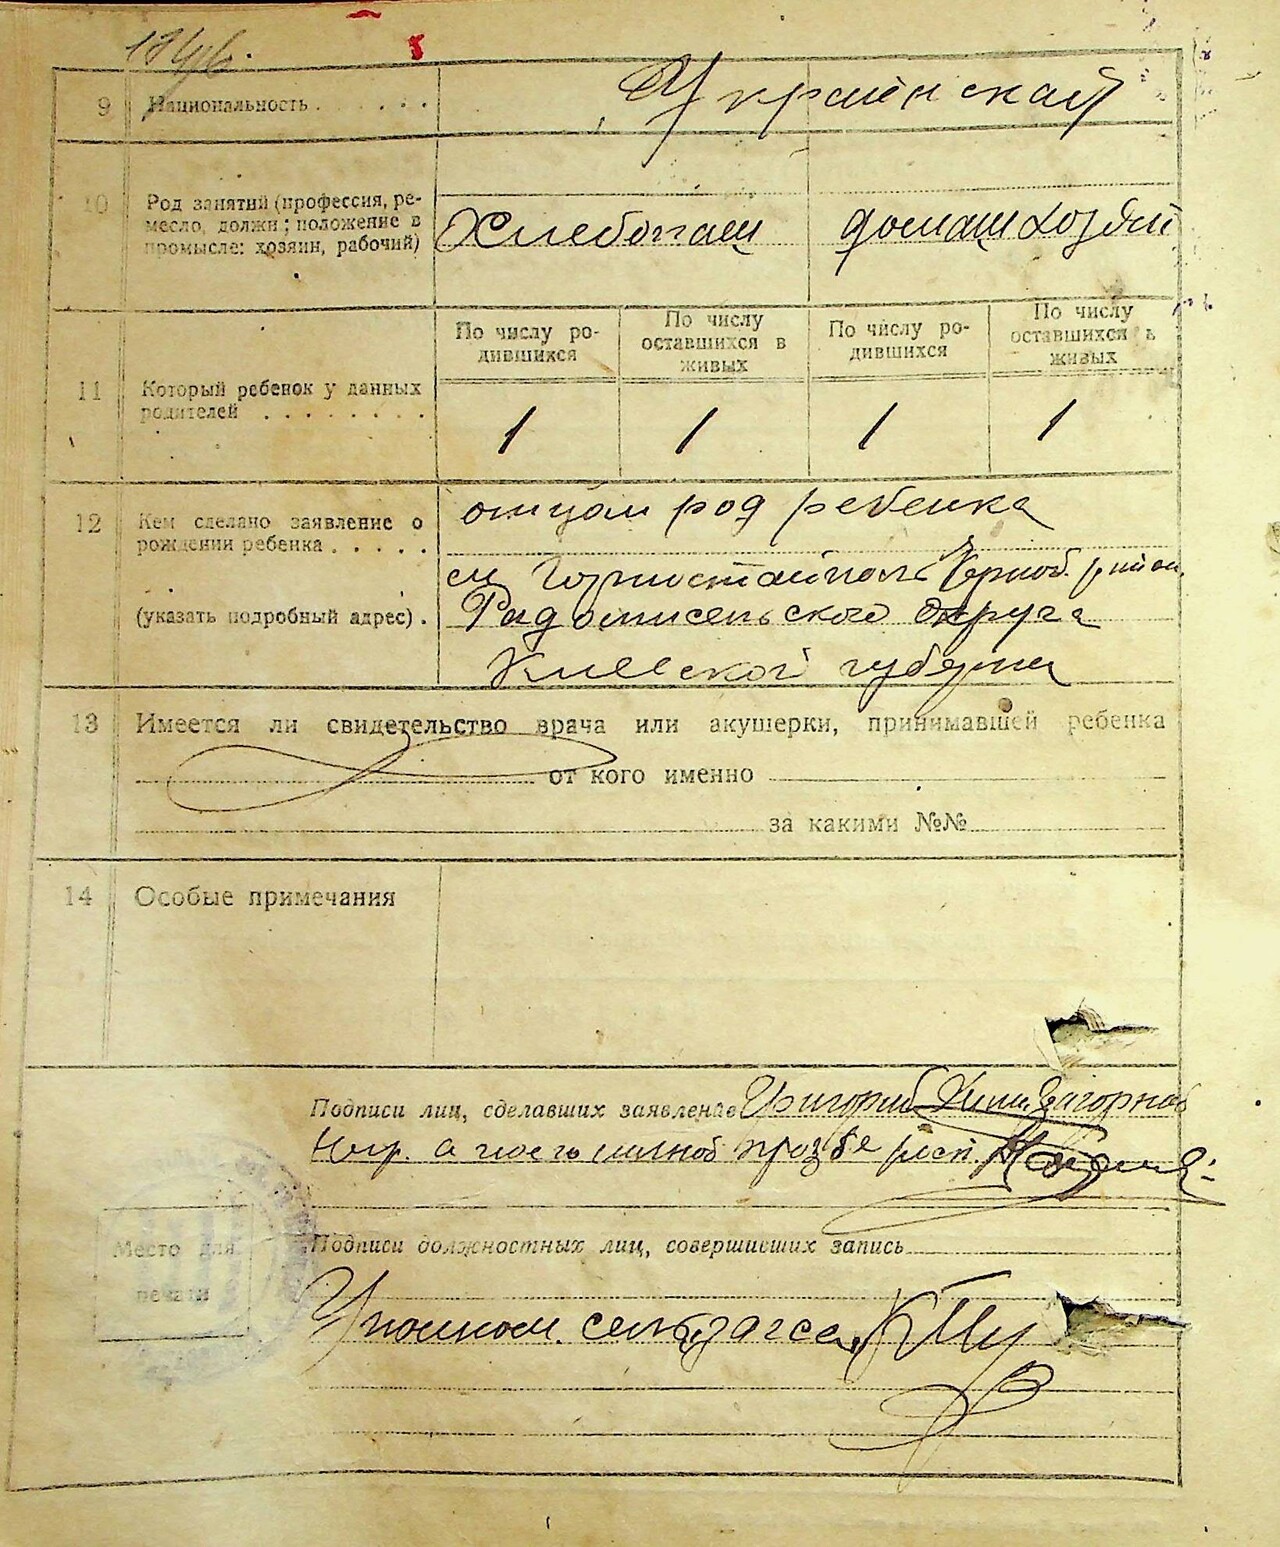 9 Национальность . . . . . .
Украинская
10 Род занятий (профессия, ре-
месло, должн; положение в
промысле: хозяин, рабочий)
Хлебопаш домаш хозяй
По числу ро-
дившихся
По числу
оставшихся в
живых
По числу ро-
дившихся
По числу
оставшихся в
живых
11 Который ребенок у данных
родителей . . . . . . . .
1 1 1 1
12 Кем сделано заявление о
рождении ребенка . . . . .
(указать подробный адрес) .
отцом род ребенка
м Горностайполь Черноб. район
Радомисельского округа
Киевской губерни
13 Имеется ли свидетельство врача или акушерки, принимавшей ребенка
от кого именно
за какими №№
14 Особые примечания
Подписи лиц, сделавших заявление Григорий Загорнов
Негр. а по его личной прозбе расп.
Место для
печати
Подписи должностных лиц, совершивших запись
Уполном. сельзагса